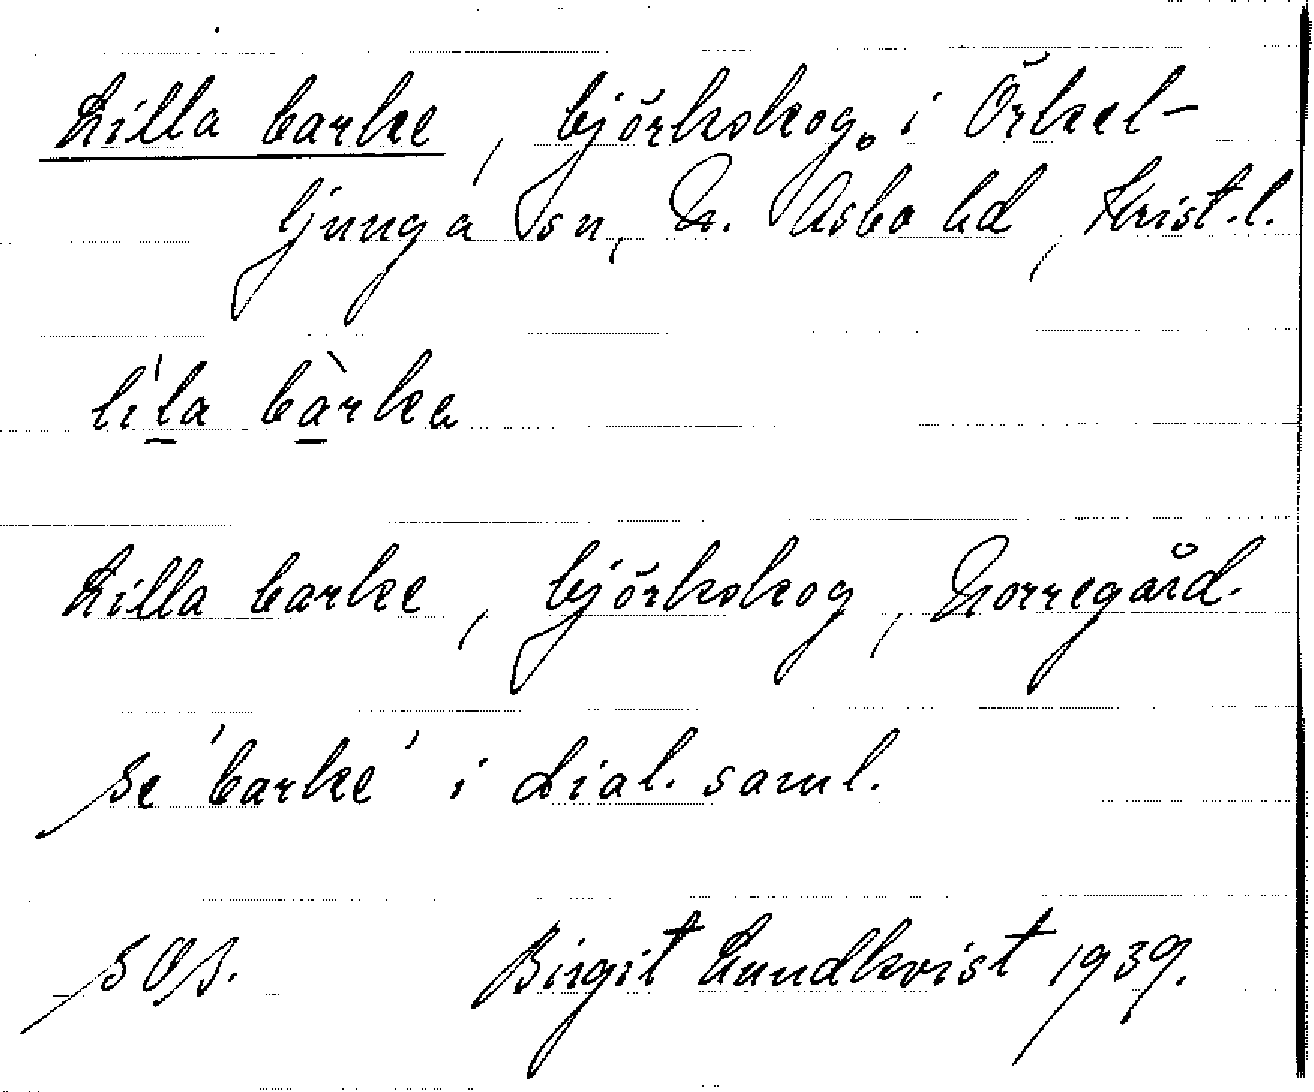 Lilla barke, björkskog, i Örkel-
ljunga sn, N. Åsbo hd, Krist.l.
lìla bàrke
Lilla barke, björkskog, Norregård.
se 'barke' i dial. saml.
Birgit Lundkvist 1939.